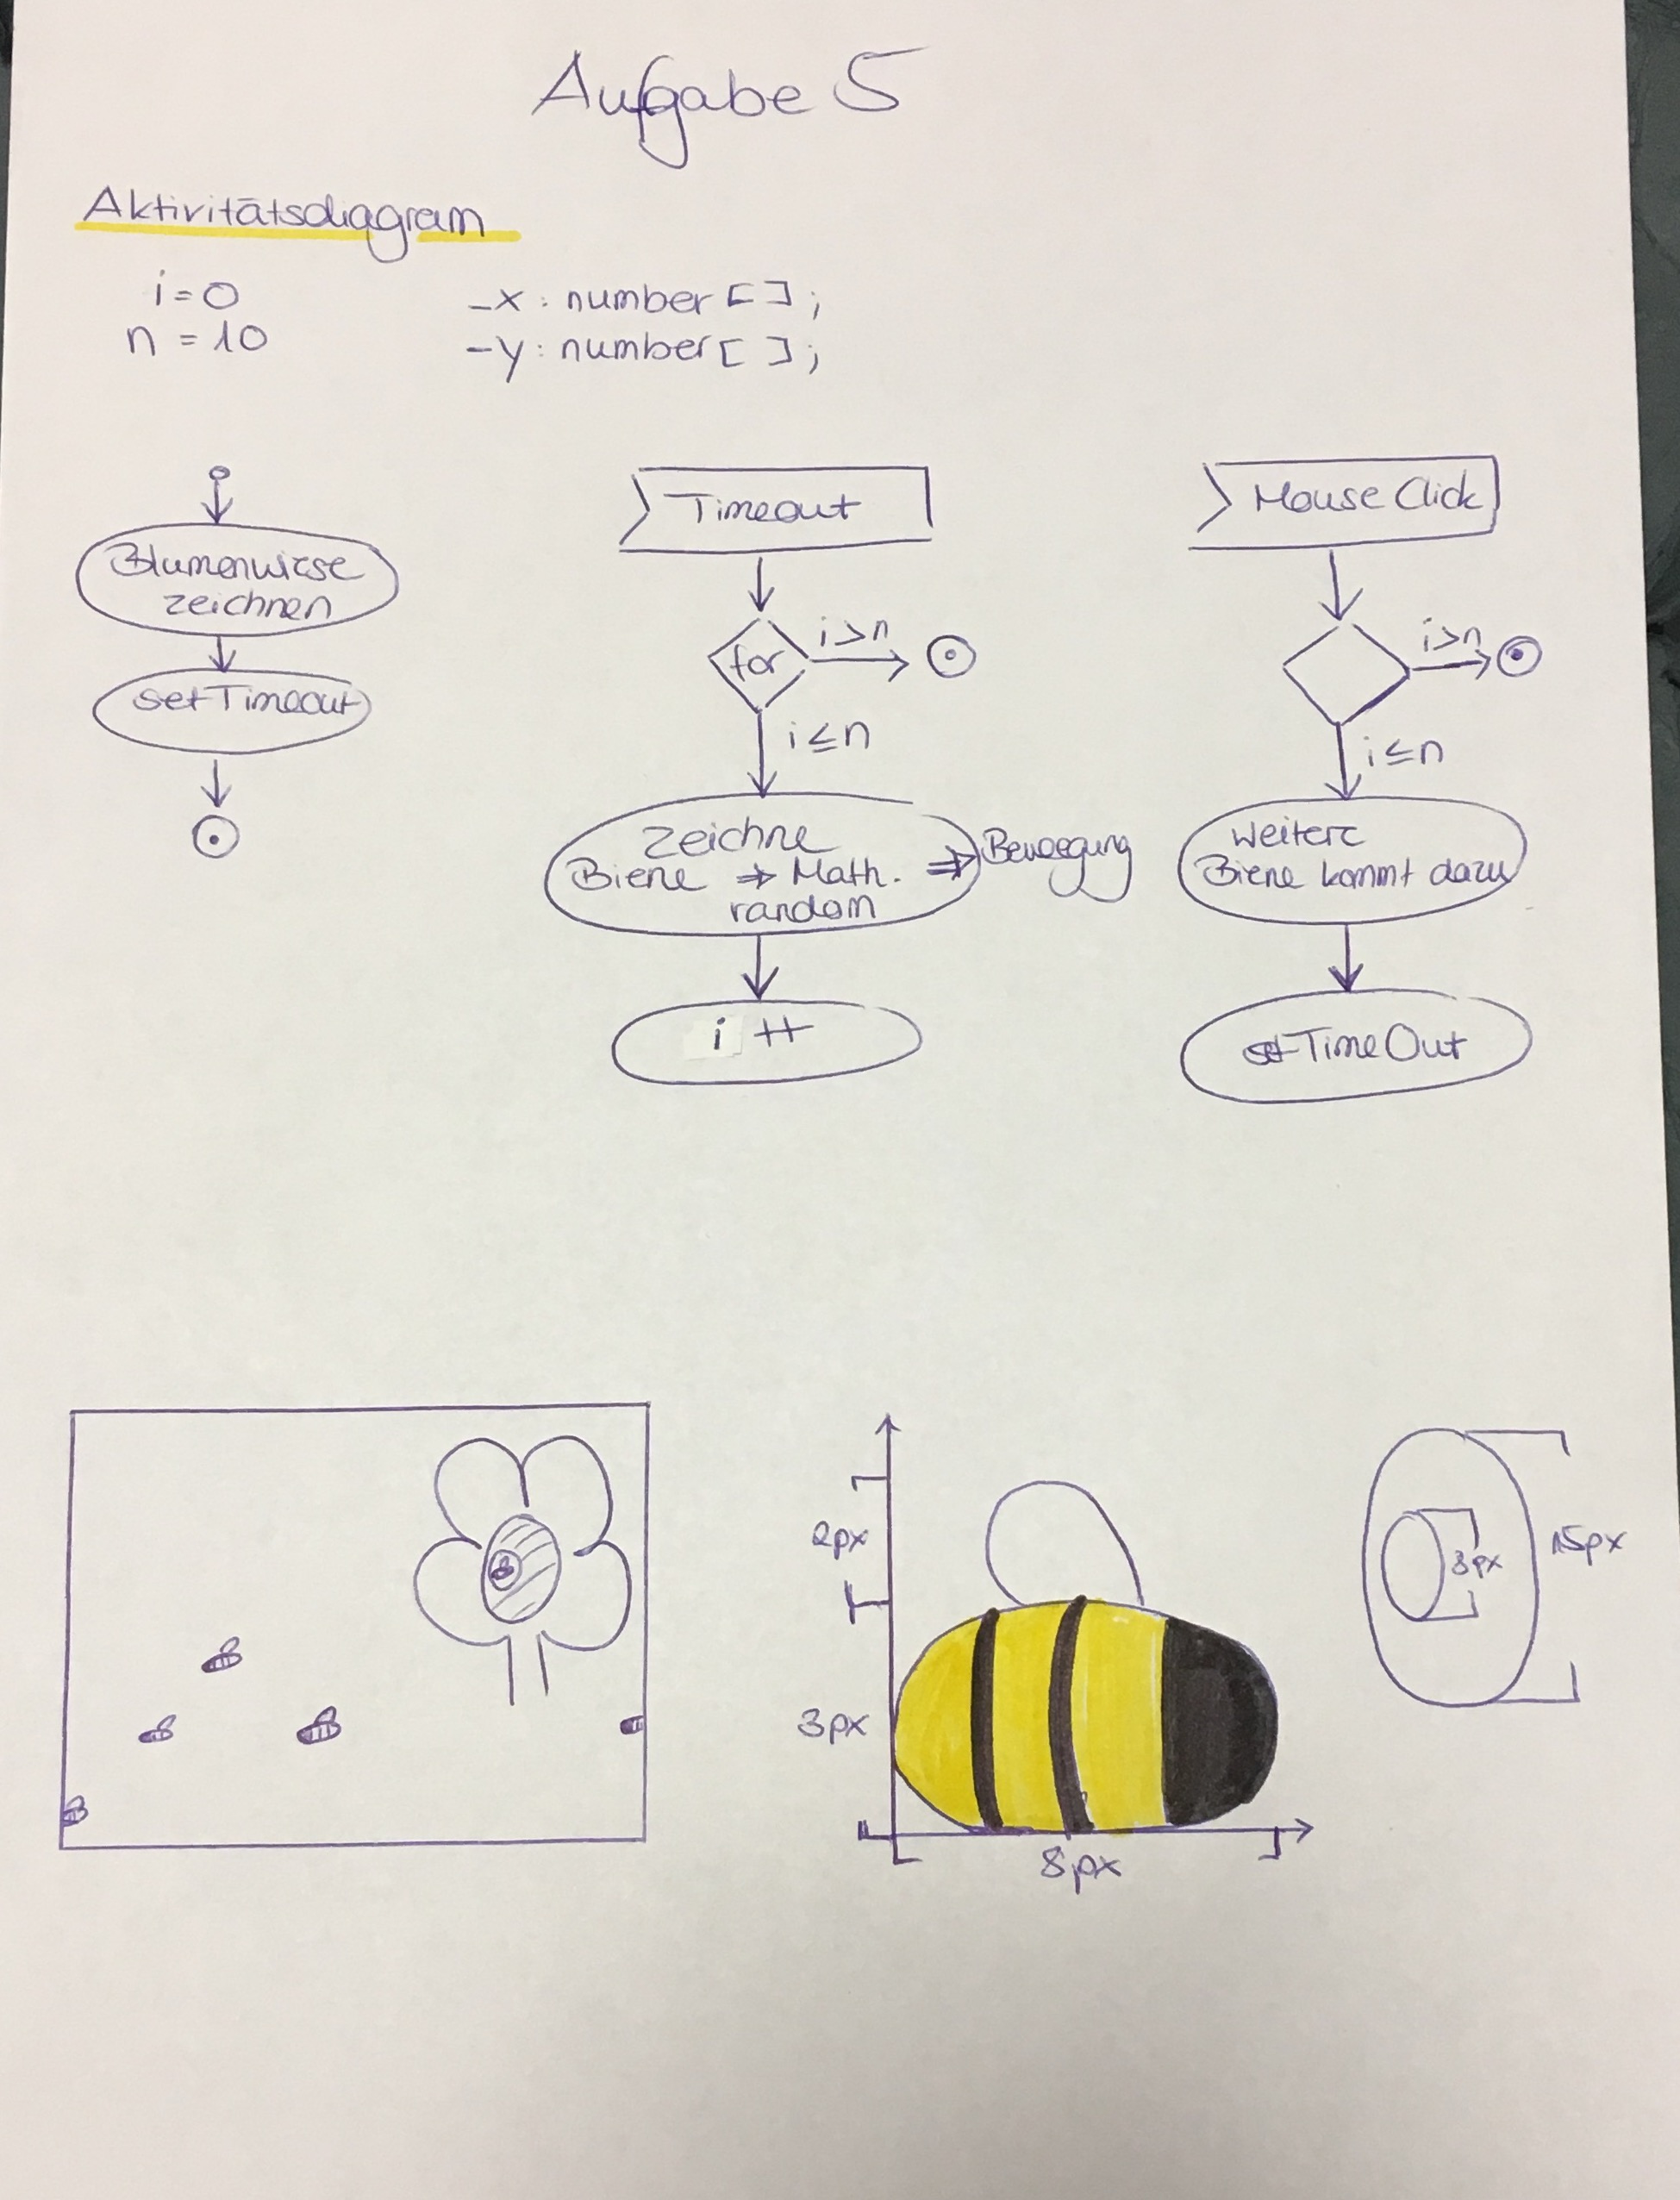 Aufgabe 5
Aktivitätsdiagram
i=0
n = 10
_x : number [ ];
_y : number [ ];
Blumenwiese
zeichnen
setTimeout
Timeout
for
i>n
i≤n
zeichne
Biene ⇒ Math.
random
⇒ Bewegung
i ++
Mouse Click
i>n
i≤n
Weitere
Biene kommt dazu
setTimeOut
2px
3px
8px
3px
15px